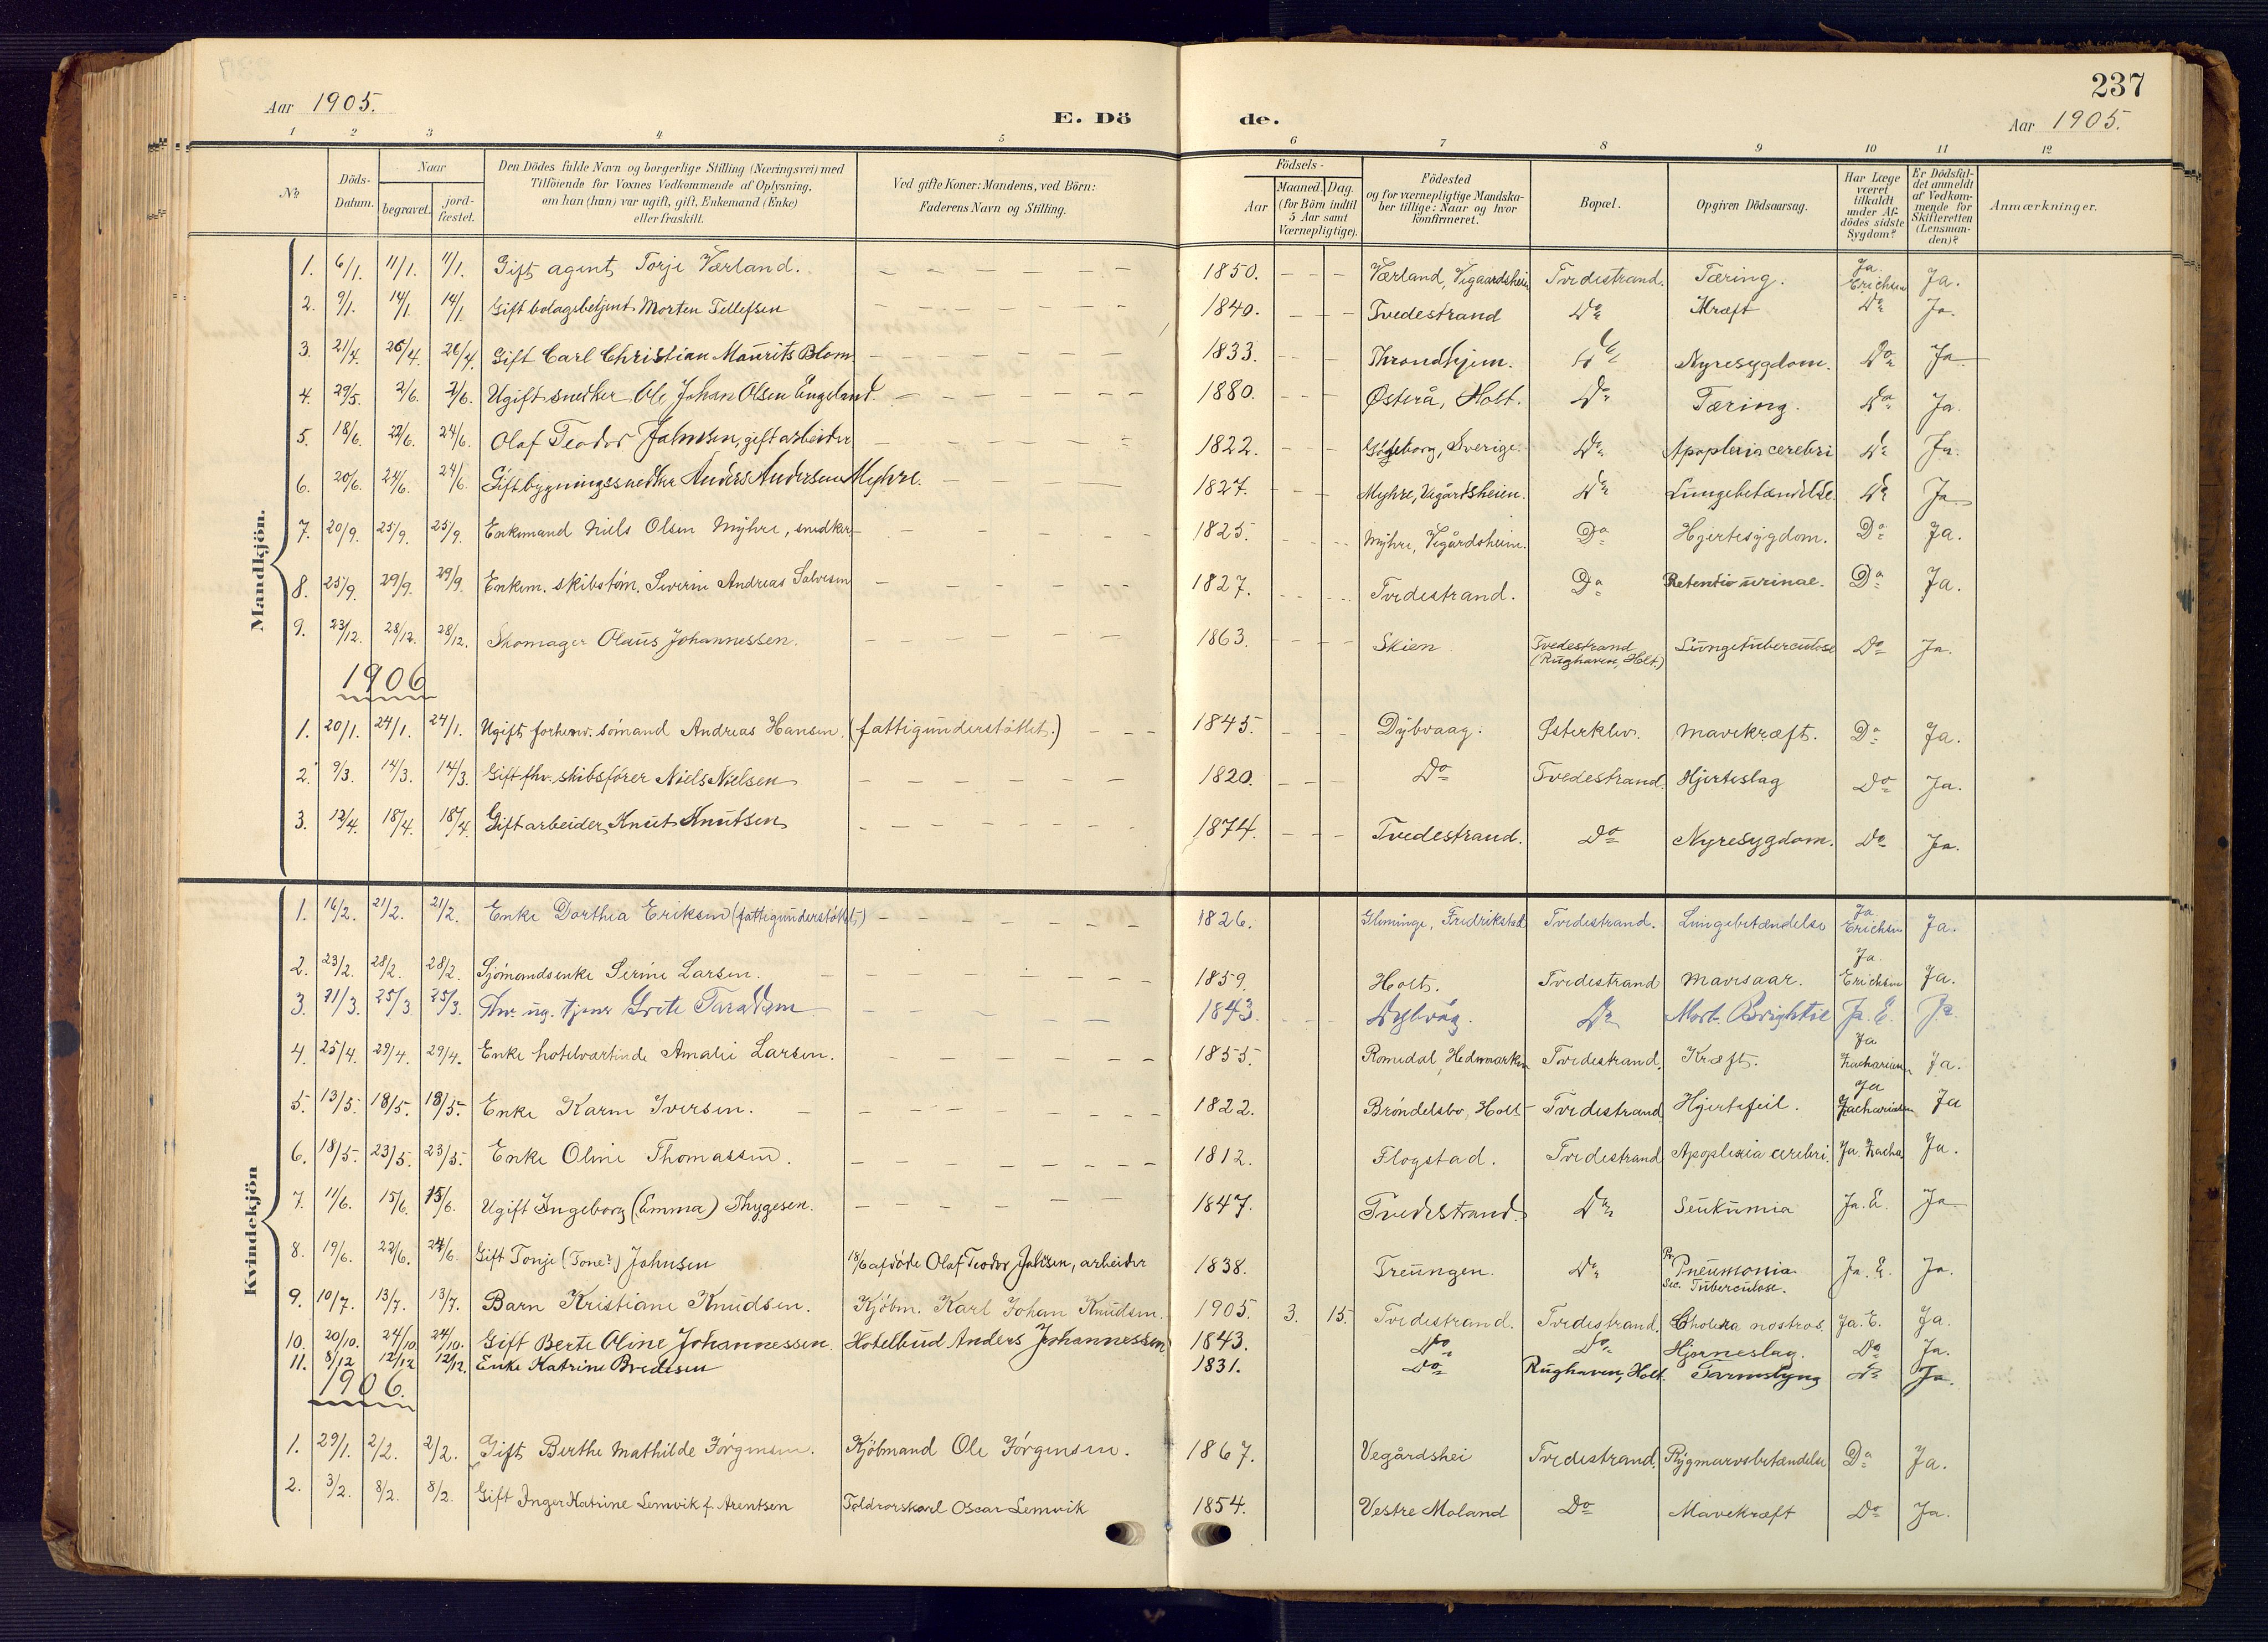 237
Aar 1905.
E. Dö de.
Aar 1905.
1 2 3 4 5 6 7 8 9 10 11 12
No.
Döds-Datum.
Naar
begravet.
jordfæstet.
Den Dödes fulde Navn og borgerlige Stilling (Næringsvei) med
Tilföiende for Voxnes Vedkommende af Oplysning,
om han (hun) var ugift, gift, Enkemand (Enke)
eller fraskilt.
Ved gifte Koner: Mandens, ved Börn:
Faderens Navn og Stilling.
Födsels-
Aar
Maaned. Dag.
(for Börn indtil
5 Aar samt
Værnepligtige).
Födested
og for værnepligtige Mandska-
ber tillige: Naar og hvor
konfirmeret.
Bopæl.
Opgiven Dödsaarsag.
Har Læge
været
tilkaldt
under Af-
dödes sidste
Sygdom?
Er Dödsfal-
det anmeldt
af Vedkom-
mende for
Skifteretten
(Lensman-
den)?
Anmærkninger.
Mandkjön.
1. 6/1. 11/1. 11/1. Gift agent Torje Værland. 1850. Værland, Vegaardsheien Tvedestrand. Tæring. Ja. Erichsen Ja.
2. 9/1. 14/1. 14/1. Gift bolagsbetjent Morten Tellefsen 1840. Tvedestrand Do Kræft Do Ja.
3. 21/4. 26/4. 26/4. Gift Carl Christian Maurits Blom 1833. Throndhjem. Do Nyresygdom. Do Ja
4. 29/5. 2/6. 2/6. Ugift snedker Ole Johan Olsen Engeland. 1880. Østerå, Holt. Do Tæring. Do Ja.
5. 18/6. 22/6. 24/6. Olaf Teodor Jahnsen, gift arbeider 1822. Göteborg, Sverige. Do Apoplexia cerebri Do Ja.
6. 20/6. 24/6. 24/6. Gift bygningssnedker Anders Andersen Myhre. 1827. Myhre, Vegårdsheien. Do Lungebetændelse. Do Ja
7. 20/9. 25/9. 25/9. Enkemand Niels Olsen Myhre, snedker 1825. Myhre, Vegårdsheien. Do Hjertesygdom. Do Ja.
8. 25/9. 29/9. 29/9. Enkem. skibstøm. Severin Andreas Salvesen 1827. Tvedestrand. Do Retentio urinae. Do Ja.
9. 23/12. 28/12. 28/12. Skomager Olaus Johannessen. 1863. Skien. Tvedestrand (Rughaven, Holt.) Lungetuberculose Do Ja.
1906
1. 20/1. 24/1. 24/1. Ugift forhenv. sömand Andreas Hansen. (fattigunderstöttet.) 1845. Dybvaag. Østerklev. Mavekræft. Do Ja.
2. 9/3. 14/3. 14/3. Gift fhv. skibsförer Niels Nielsen 1820. Do Tvedestrand. Hjerteslag Do Ja.
3. 12/4. 18/4. 18/4. Gift arbeider Knut Knutsen 1874. Tvedestrand. Do Nyresygdom. Do Ja.
Kvindekjön
1. 16/2. 21/2. 21/2. Enke Dorthea Eriksen (fattigunderstöttet) 1826. Glemminge, Fredrikstad Tvedestrand. Lungebetændelse Ja Erichsen Ja.
2. 23/2. 28/2. 28/2. Sjömandsenke Serine Larsen. 1859. Holt. Tvedestrand Mavesaar. Ja. Erichsen Ja.
3. 21/3. 25/3 25/3. Fhv. ug. tjener Grete 1843. Dybvåg. Do Morb. Brightii Ja. E. Ja.
4. 25/4. 29/4. 29/4. Enke hotelvertinde Amalie Larsen. 1855. Romedal, Hedemarken Tvedestrand. Kræft. Ja Zachariasen Ja.
5. 13/5. 18/5. 18/5. Enke Karen Iversen. 1822. Bröndelsbo, Holt Tvedestrand Hjertefeil. Ja Zachariasen Ja
6. 18/5. 23/5. 23/5. Enke Oline Thomassen. 1812. Flogstad. Tvedestrand Apoplexia cerebri. Ja. Zacha Ja.
7. 11/6. 15/6. 15/6. Ugift Ingeborg (Emma) Thygesen. 1847. Tvedestrand. Do Leukumia Ja. E. Ja
8. 19/6. 22/6. 24/6. Gift Tonje (Tone?) Jahnsen 18/6 afdöde Olaf Teodor Jahnsen, arbeider 1838. Treungen. Do Pr. Pneumonia Sec. Tuberculose. Ja. E. Ja.
9. 10/7. 13/7. 13/7. Barn Kristiane Knudsen. Kjöbm. Karl Johan Knudsen. 1905. 3. 15. Tvedestrand. Tvedestrand. Cholera nostras. Ja. E. Ja.
10. 20/10. 24/10 24/10. Gift Berte Oline Johannessen. Hotelbud Anders Johannessen 1843. Do Do Hjerneslag. Do Ja.
11. 8/12 12/12 12/12. Enke Katrine Bredesen 1831. Do Rughaven, Holt. Tarmslyng Do Ja.
1906.
1. 29/1. 2/2. 2/2. Gift Berthe Mathilde Jörgensen. Kjöbmand Ole Jörgensen. 1867. Vegårdshei Tvedestrand. Rygmarvsbetændelse Do Ja.
2. 3/2. 8/2. 8/2. Gift Inger Katrine Lemvik f. Arentsen Toldrorskarl Oscar Lemvik 1854. Vestre Moland Do Mavekræft Do Ja.